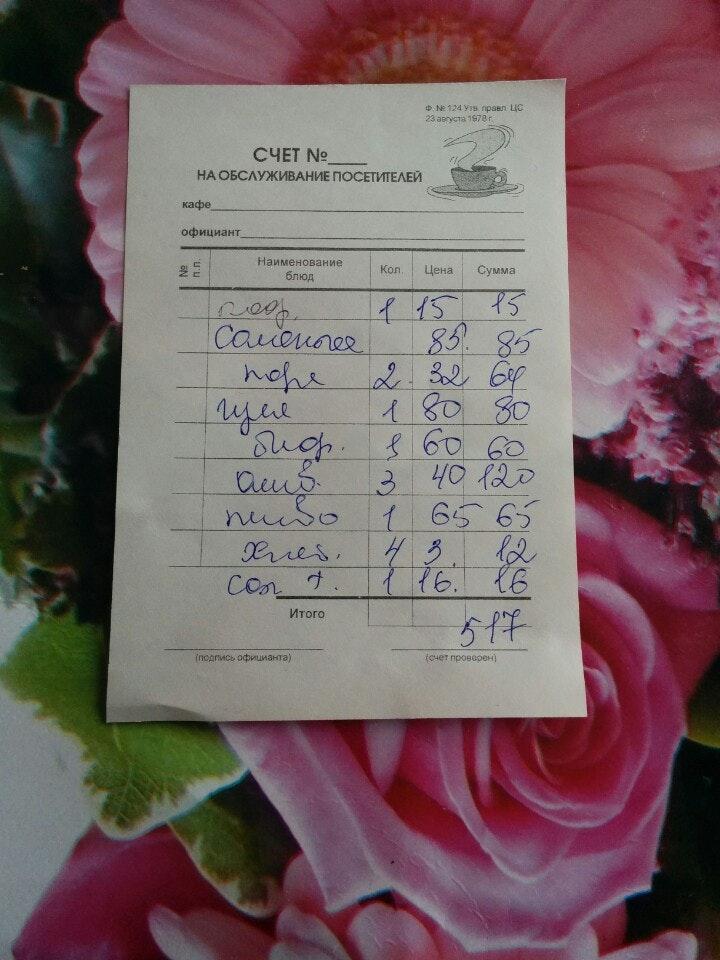 Ф. № 124 Утв. правл. ЦС
23 августа 1978 г.
СЧЕТ №____
НА ОБСЛУЖИВАНИЕ ПОСЕТИТЕЛЕЙ
кафе
официант
№ п.п. Наименование блюд Кол. Цена Сумма
1 15 15
85. 85
2. 32 64
1 80 80
1 60 60
3 40 120
пиво 1 65 65
хлеб. 4 3. 12
сок т. 1 16. 16
Итого
517
(подпись официанта) (счет проверен)